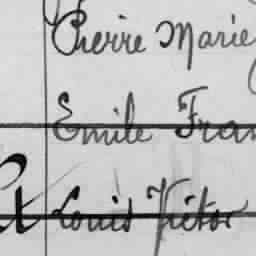 Pierre Marie
Emile Fran
Louis Victor